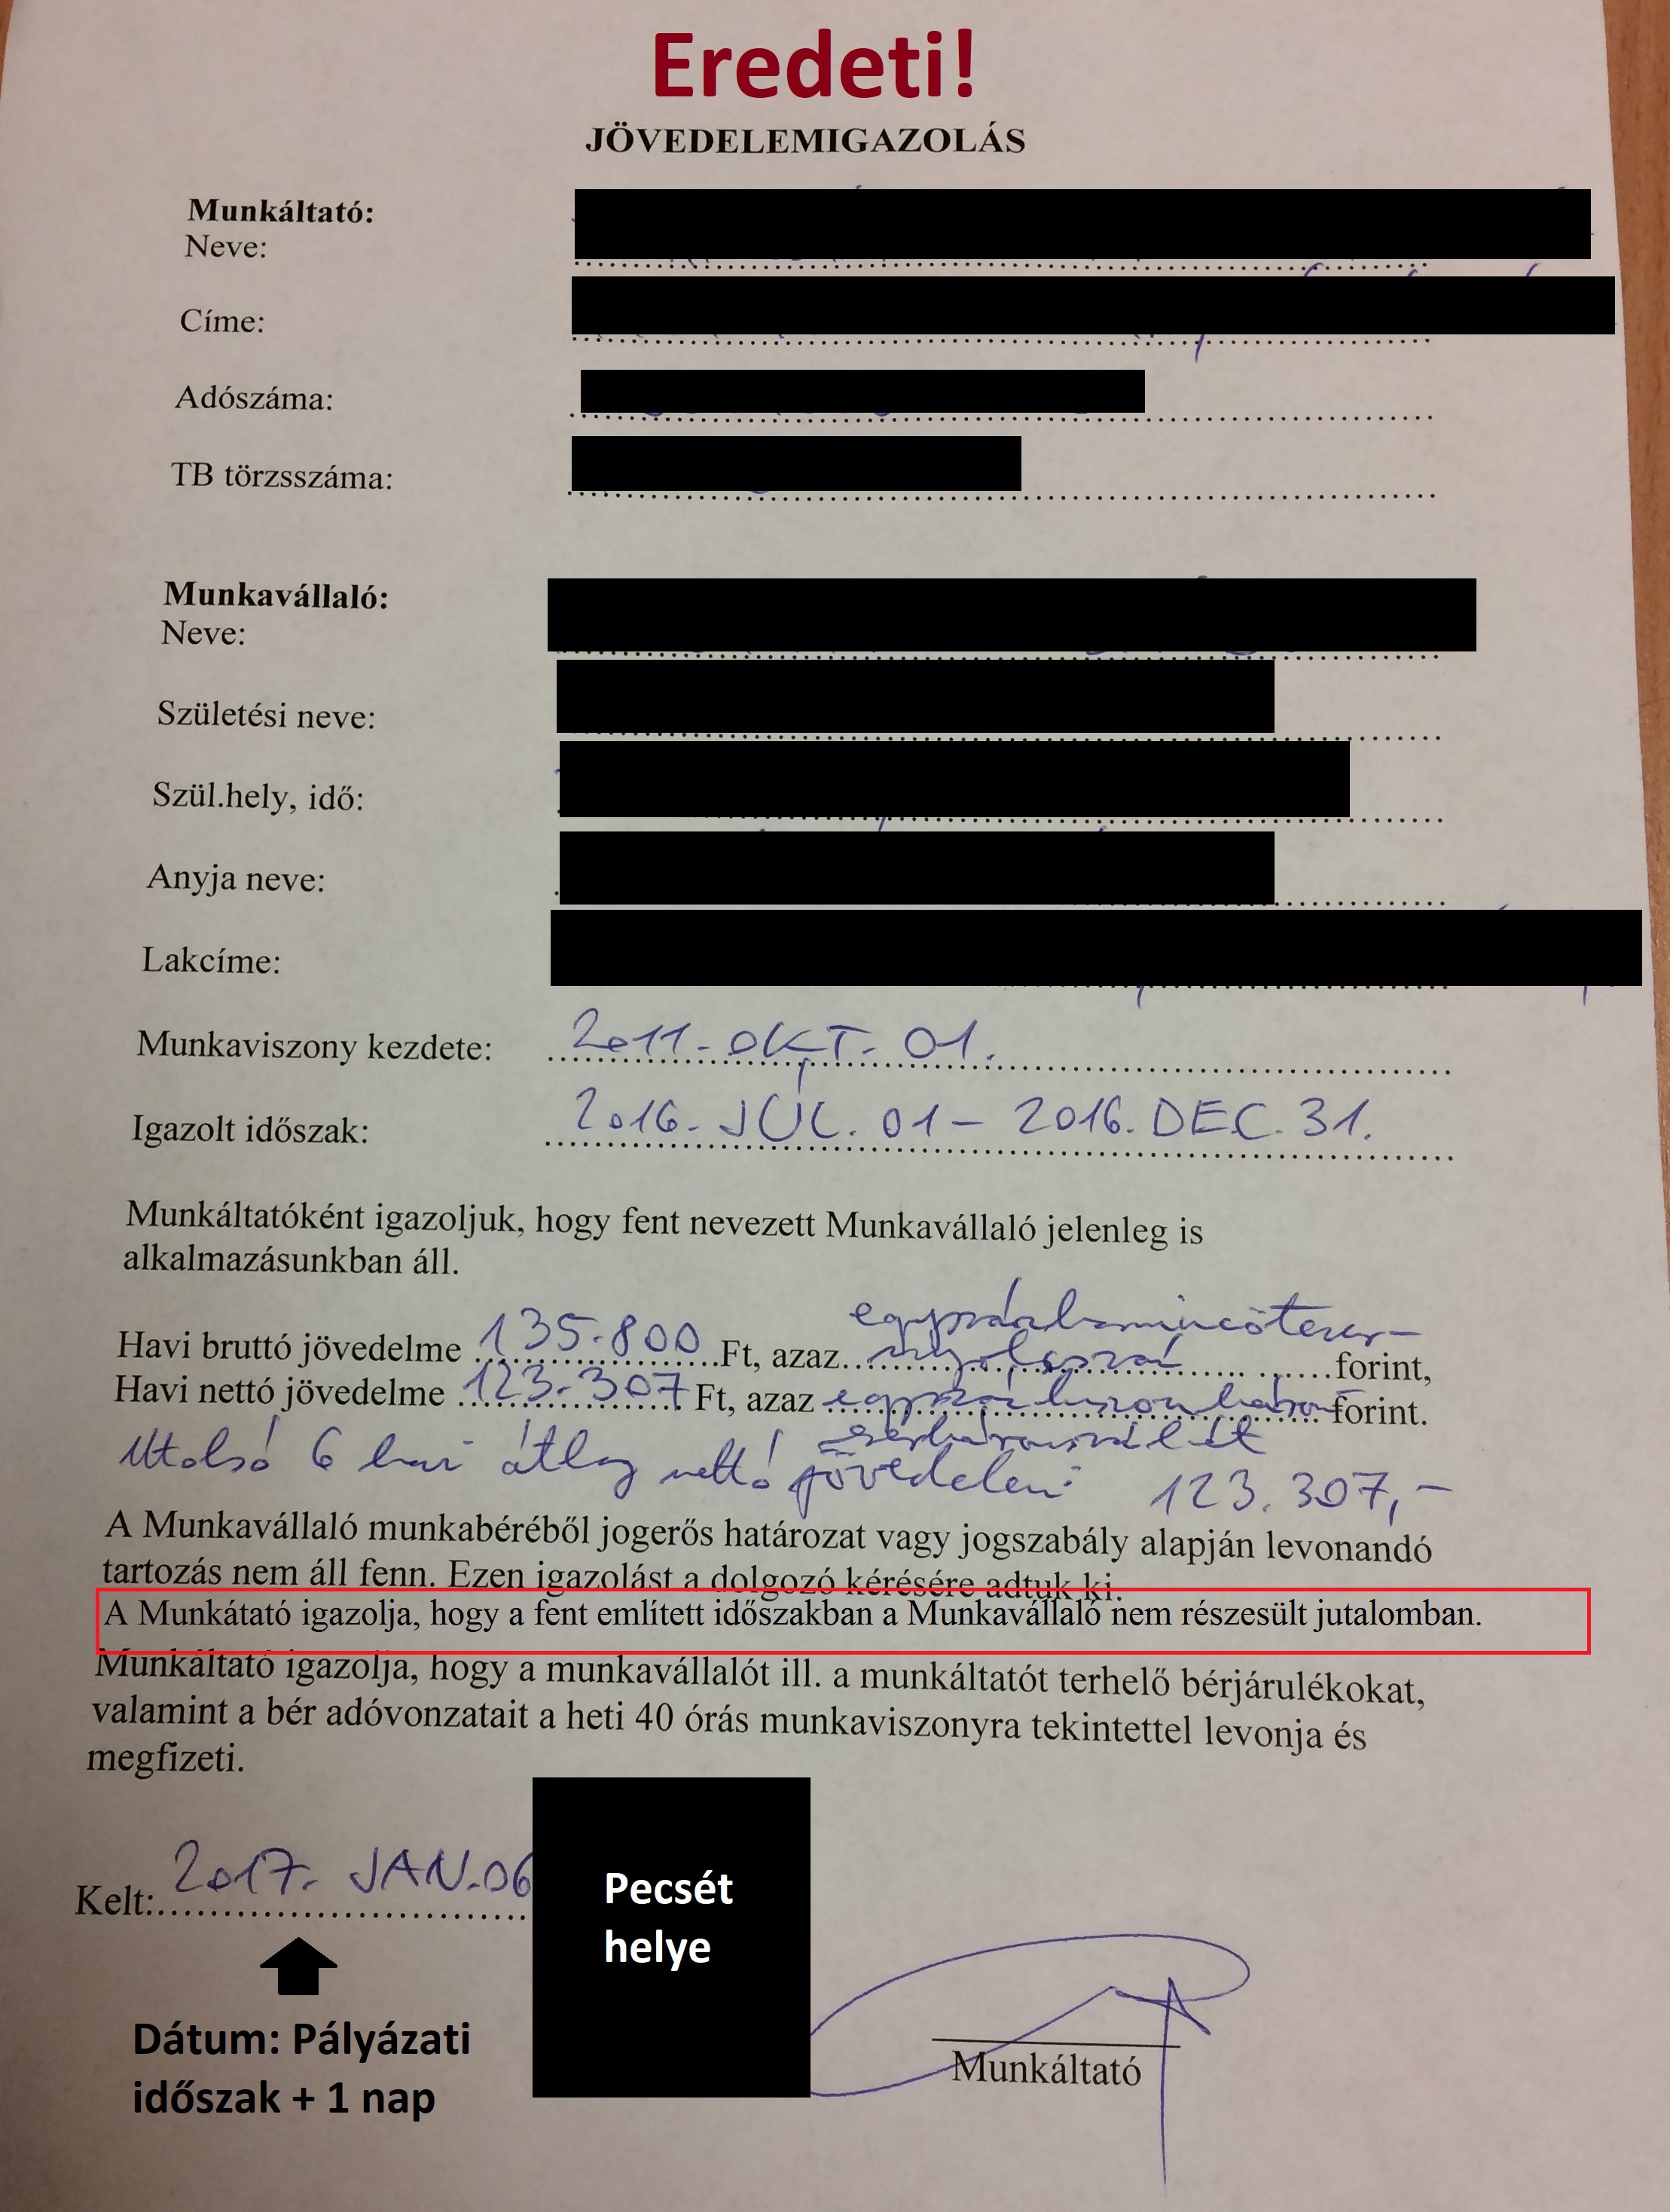 Eredeti!
JÖVEDELEMIGAZOLÁS
Munkáltató:
Neve:
Címe:
Adószáma:
TB törzsszáma:
Munkavállaló:
Neve:
Születési neve:
Szül.hely, idő:
Anyja neve:
Lakcíme:
Munkaviszony kezdete: 2011. OKT. 01.
Igazolt időszak: 2016. JÚL. 01 - 2016. DEC. 31.
Munkáltatóként igazoljuk, hogy fent nevezett Munkavállaló jelenleg is
alkalmazásunkban áll.
egyszázharmincötezer-
Havi bruttó jövedelme 135.800 Ft, azaz nyolcszáz forint,
Havi nettó jövedelme 123.307 Ft, azaz egyszázhuszonhárom- forint.
ezerháromszázhét
Utolsó 6 havi átlag nettó jövedelem: 123.307,-
A Munkavállaló munkabéréből jogerős határozat vagy jogszabály alapján levonandó
tartozás nem áll fenn. Ezen igazolást a dolgozó kérésére adtuk ki.
A Munkátató igazolja, hogy a fent említett időszakban a Munkavállaló nem részesült jutalomban.
Munkáltató igazolja, hogy a munkavállalót ill. a munkáltatót terhelő bérjárulékokat,
valamint a bér adóvonzatait a heti 40 órás munkaviszonyra tekintettel levonja és
megfizeti.
Kelt: 2017. JAN. 06
Pecsét
helye
Dátum: Pályázati
időszak + 1 nap
Munkáltató